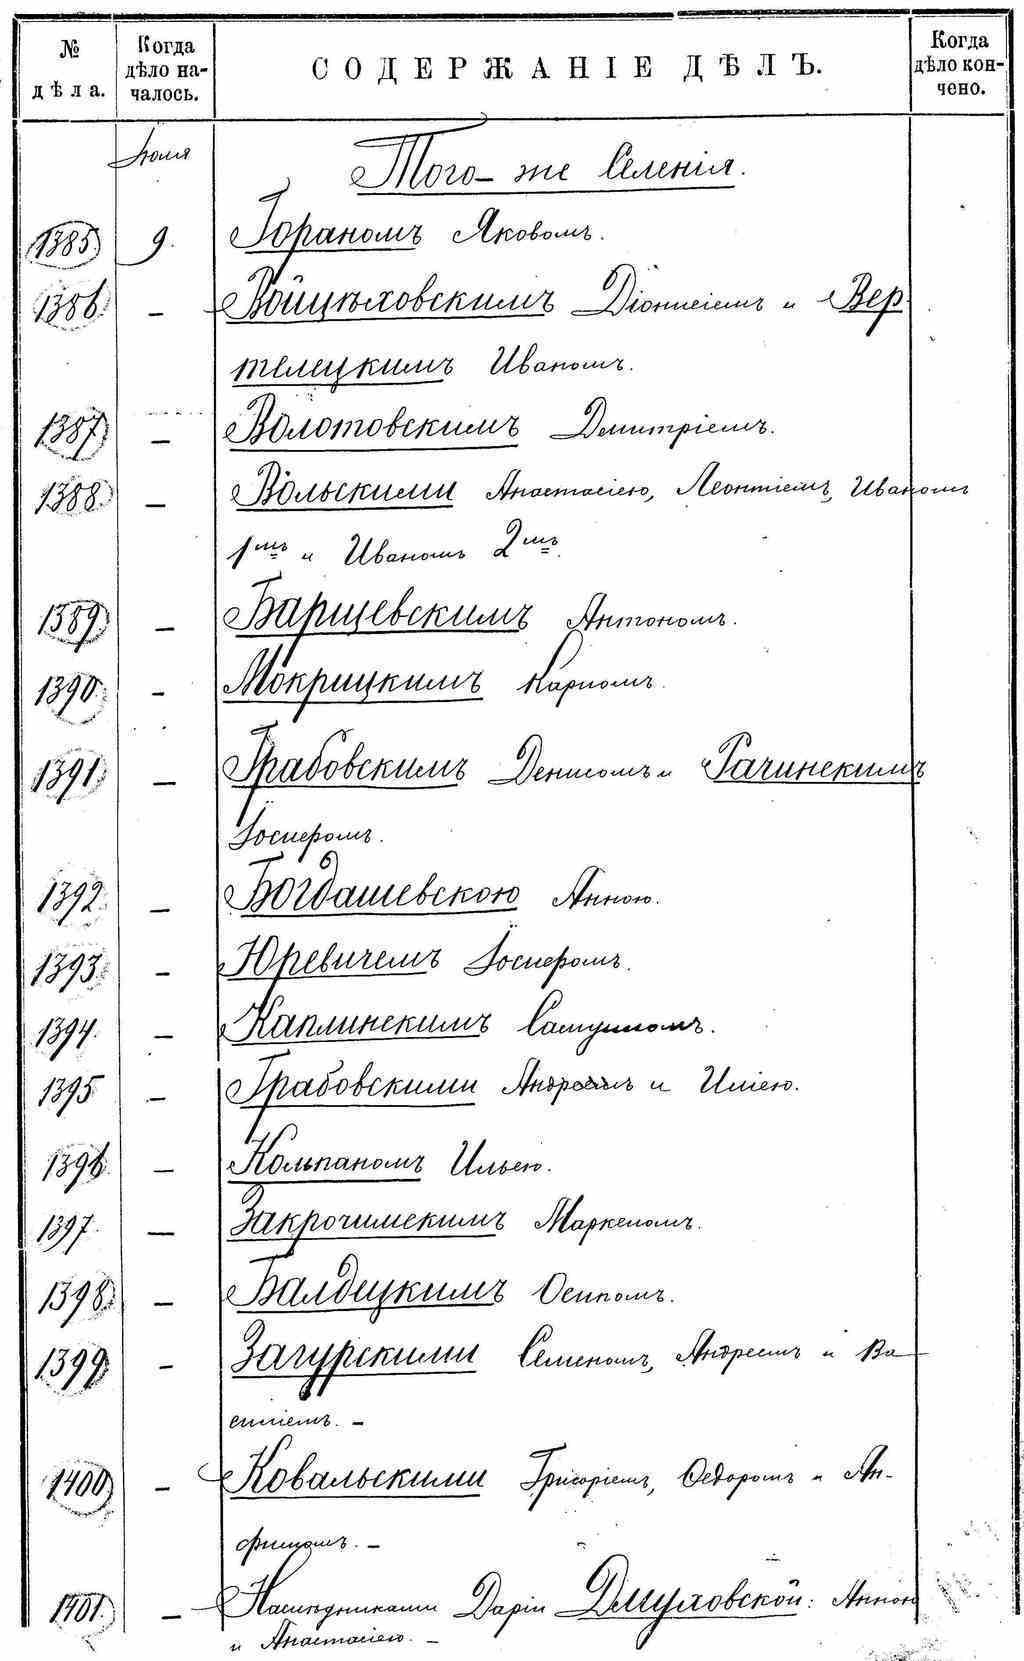 № дѣла. Когда дѣло началось. СОДЕРЖАНІЕ ДѢЛЪ. Когда дѣло кончено.
Іюля
Того-же Селенія.
1385 9. Гораномъ Яковомъ.
1386 — Войцѣховскимъ Діонисіемъ и Вер-
телецкимъ Иваномъ.
1387 — Волотовскимъ Дмитріемъ.
1388 — Вольскими Анастасіею, Леонтіемъ, Иваномъ
1мъ и Иваномъ 2мъ.
1389 — Барщевскимъ Антономъ.
1390 — Мокрицкимъ Карпомъ.
1391 — Грабовскимъ Денисомъ и Рачинскимъ
Іосифомъ.
1392 — Богдашевскою Анною.
1393 — Юревичемъ Іосифомъ.
1394. — Каплинскимъ
1395 — Грабовскими Андреемъ и Иліею.
1396 — Кольпаномъ Ильею.
1397. — Закрочимскимъ
1398 — Балдецкимъ Осипомъ.
1399 — Загурскими Семеномъ, Андреемъ и Ва-
силіемъ. —
1400 — Ковальскими Григоріемъ, Ѳедоромъ и Ан-
1401. — Наслѣдниками Даріи Дмуховской: Анною
и Анастасіею. —